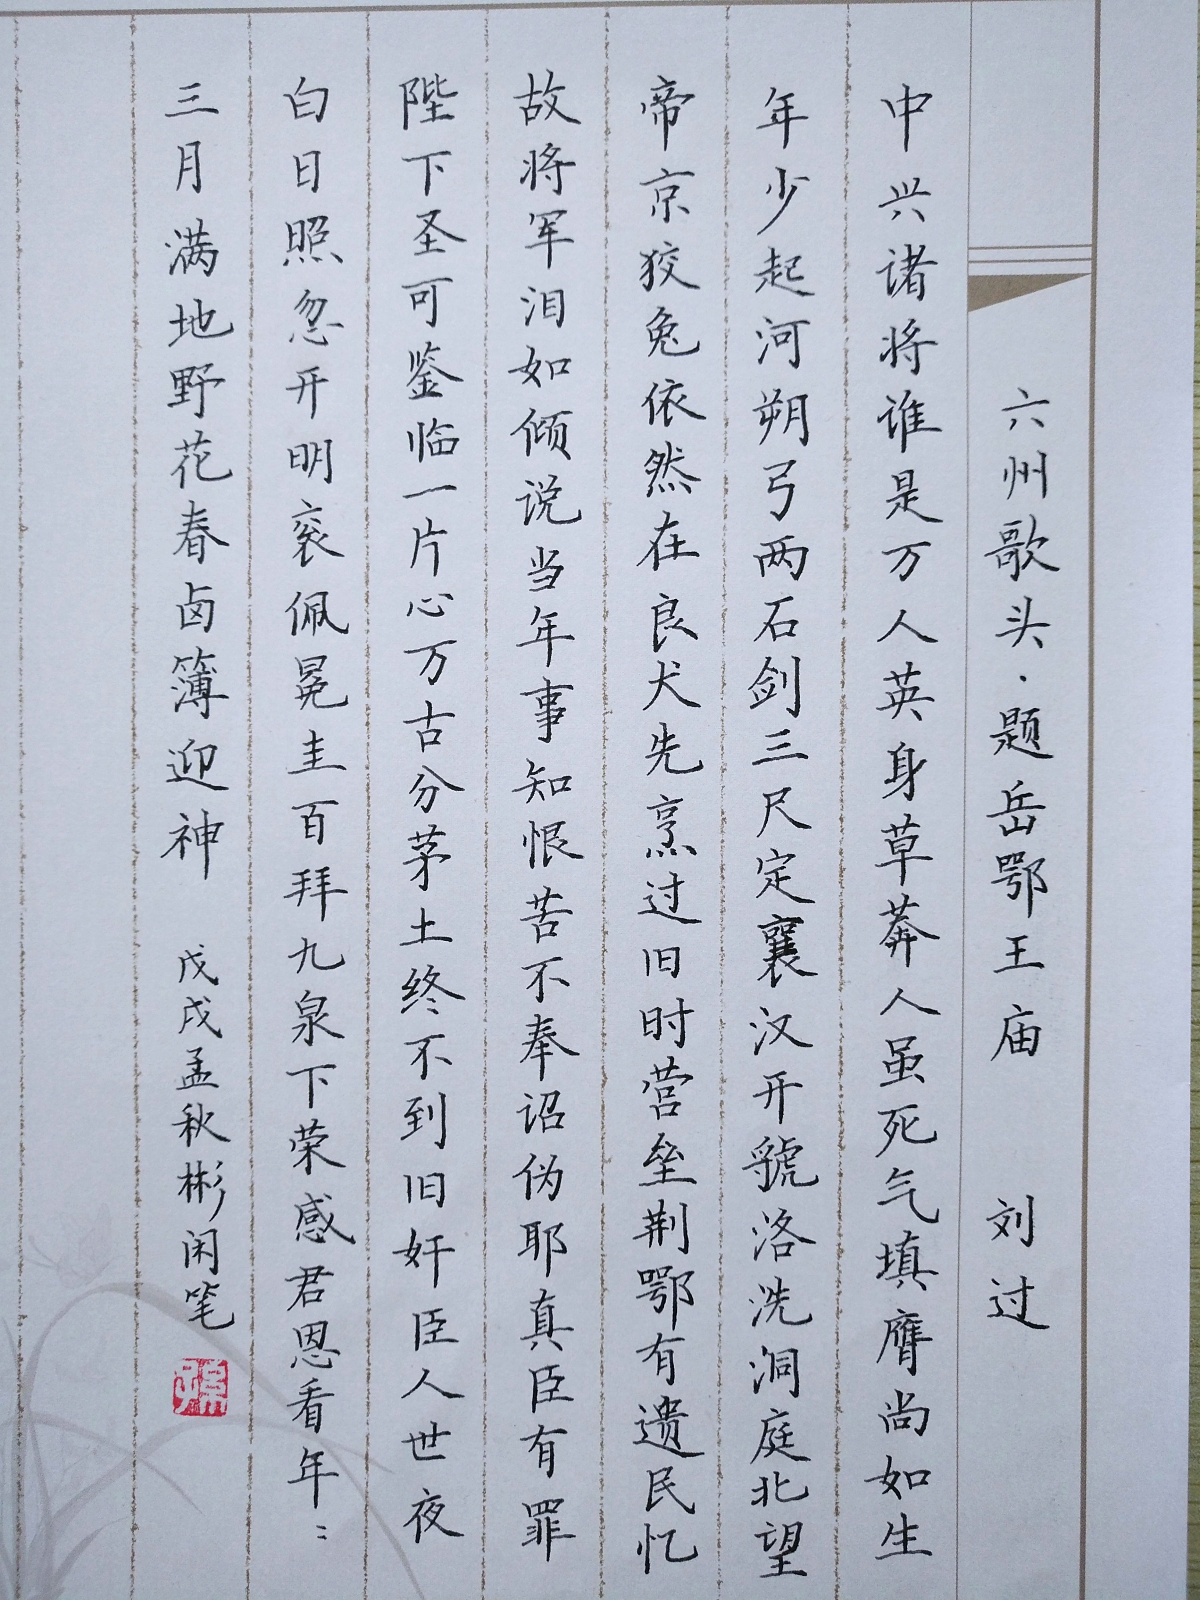 六州歌头·题岳鄂王庙 刘过
中兴诸将谁是万人英身草莽人虽死气填膺尚如生
年少起河朔弓两石剑三尺定襄汉开虢洛洗洞庭北望
帝京狡兔依然在良犬先烹过旧时营垒荆鄂有遗民忆
故将军泪如倾说当年事知恨苦不奉诏伪耶真臣有罪
陛下圣可鉴临一片心万古分茅土终不到旧奸臣人世夜
白日照忽开明衮佩冕圭百拜九泉下荣感君恩看年〻
三月满地野花春卤簿迎神 戊戌孟秋彬闲笔
孙